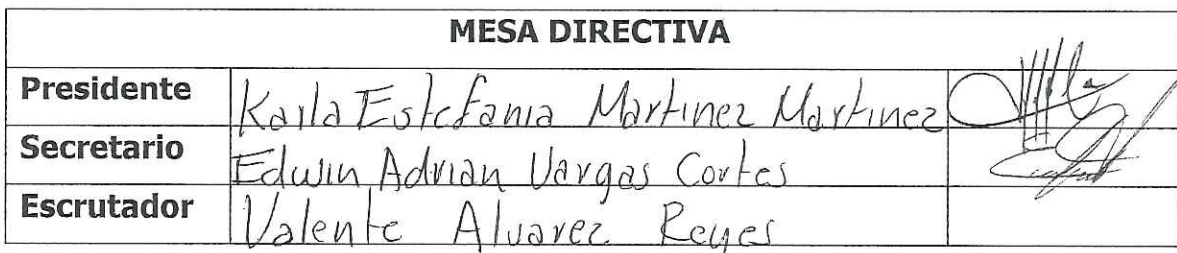 MESA DIRECTIVA
Presidente Karla Estefania Martinez Martinez
Secretario Edwin Adrian Vargas Cortes
Escrutador Valente Alvarez Reyes